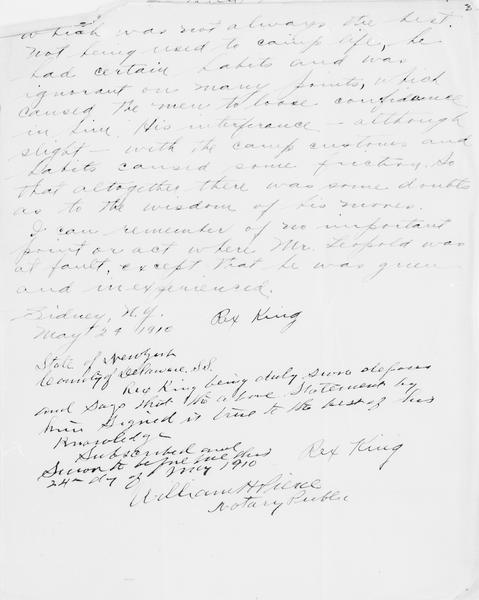 3
which was not always the best.
Not being used to camp life, he
had certain habits and was
ignorant on many points, which
caused the men to loose confidence
in him. His interferance - although
slight - with the camp customs and
habits caused some friction, so
that altogether there was some doubts
as to the wisdom of his moves.
I can remember of no important
point or act where Mr. Leopold was
at fault, except that he was green
and inexperienced.
Sidney, N.Y.
May 24 1910 Rex King
State of New York
County of Delaware, S.S.
Rex King being duly sworn deposes
and says that the above statement by
him signed is true to the best of his
Knowledge
Subscribed and
Sworn to before me this
24th day of May 1910 Rex King
William H
Notary Public